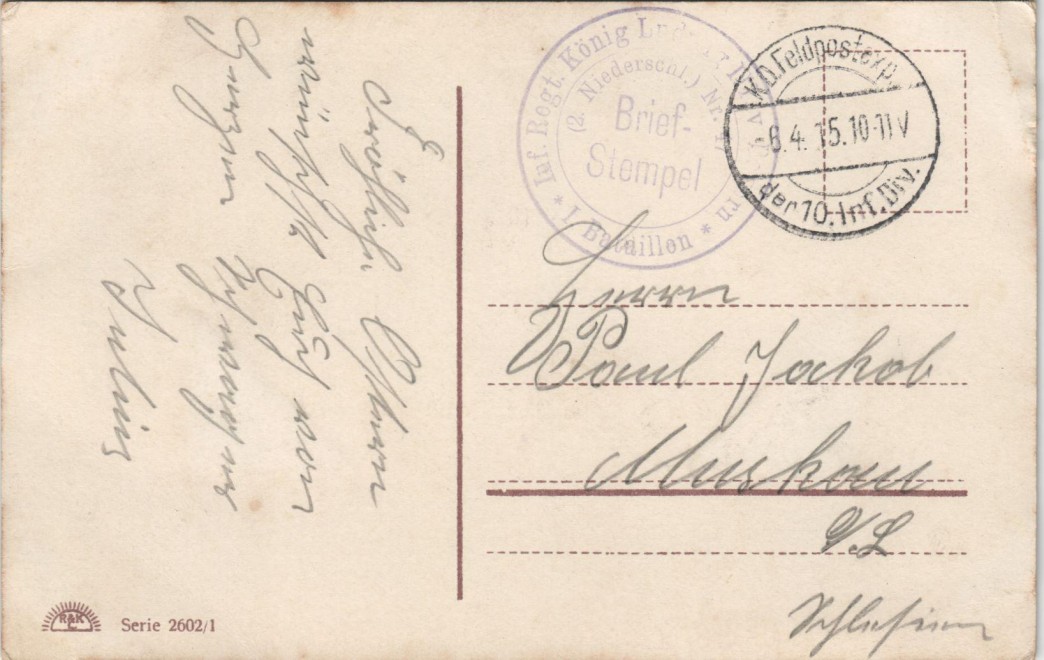 Fröhliche Ostern
wünscht Euch von
Herzen Schwager
Julius
Inf. Regt. König Ludwig III
(2. Niederschl.) Nr.
Brief-
Stempel
* I. Bataillon *
K.D. Feldpostexp.
-6.4.15.10-11V
der 10. Inf. Div.
Herrn
Paul Jakob
Muskau
O/L
Schlesien
R&K
Serie 2602/1